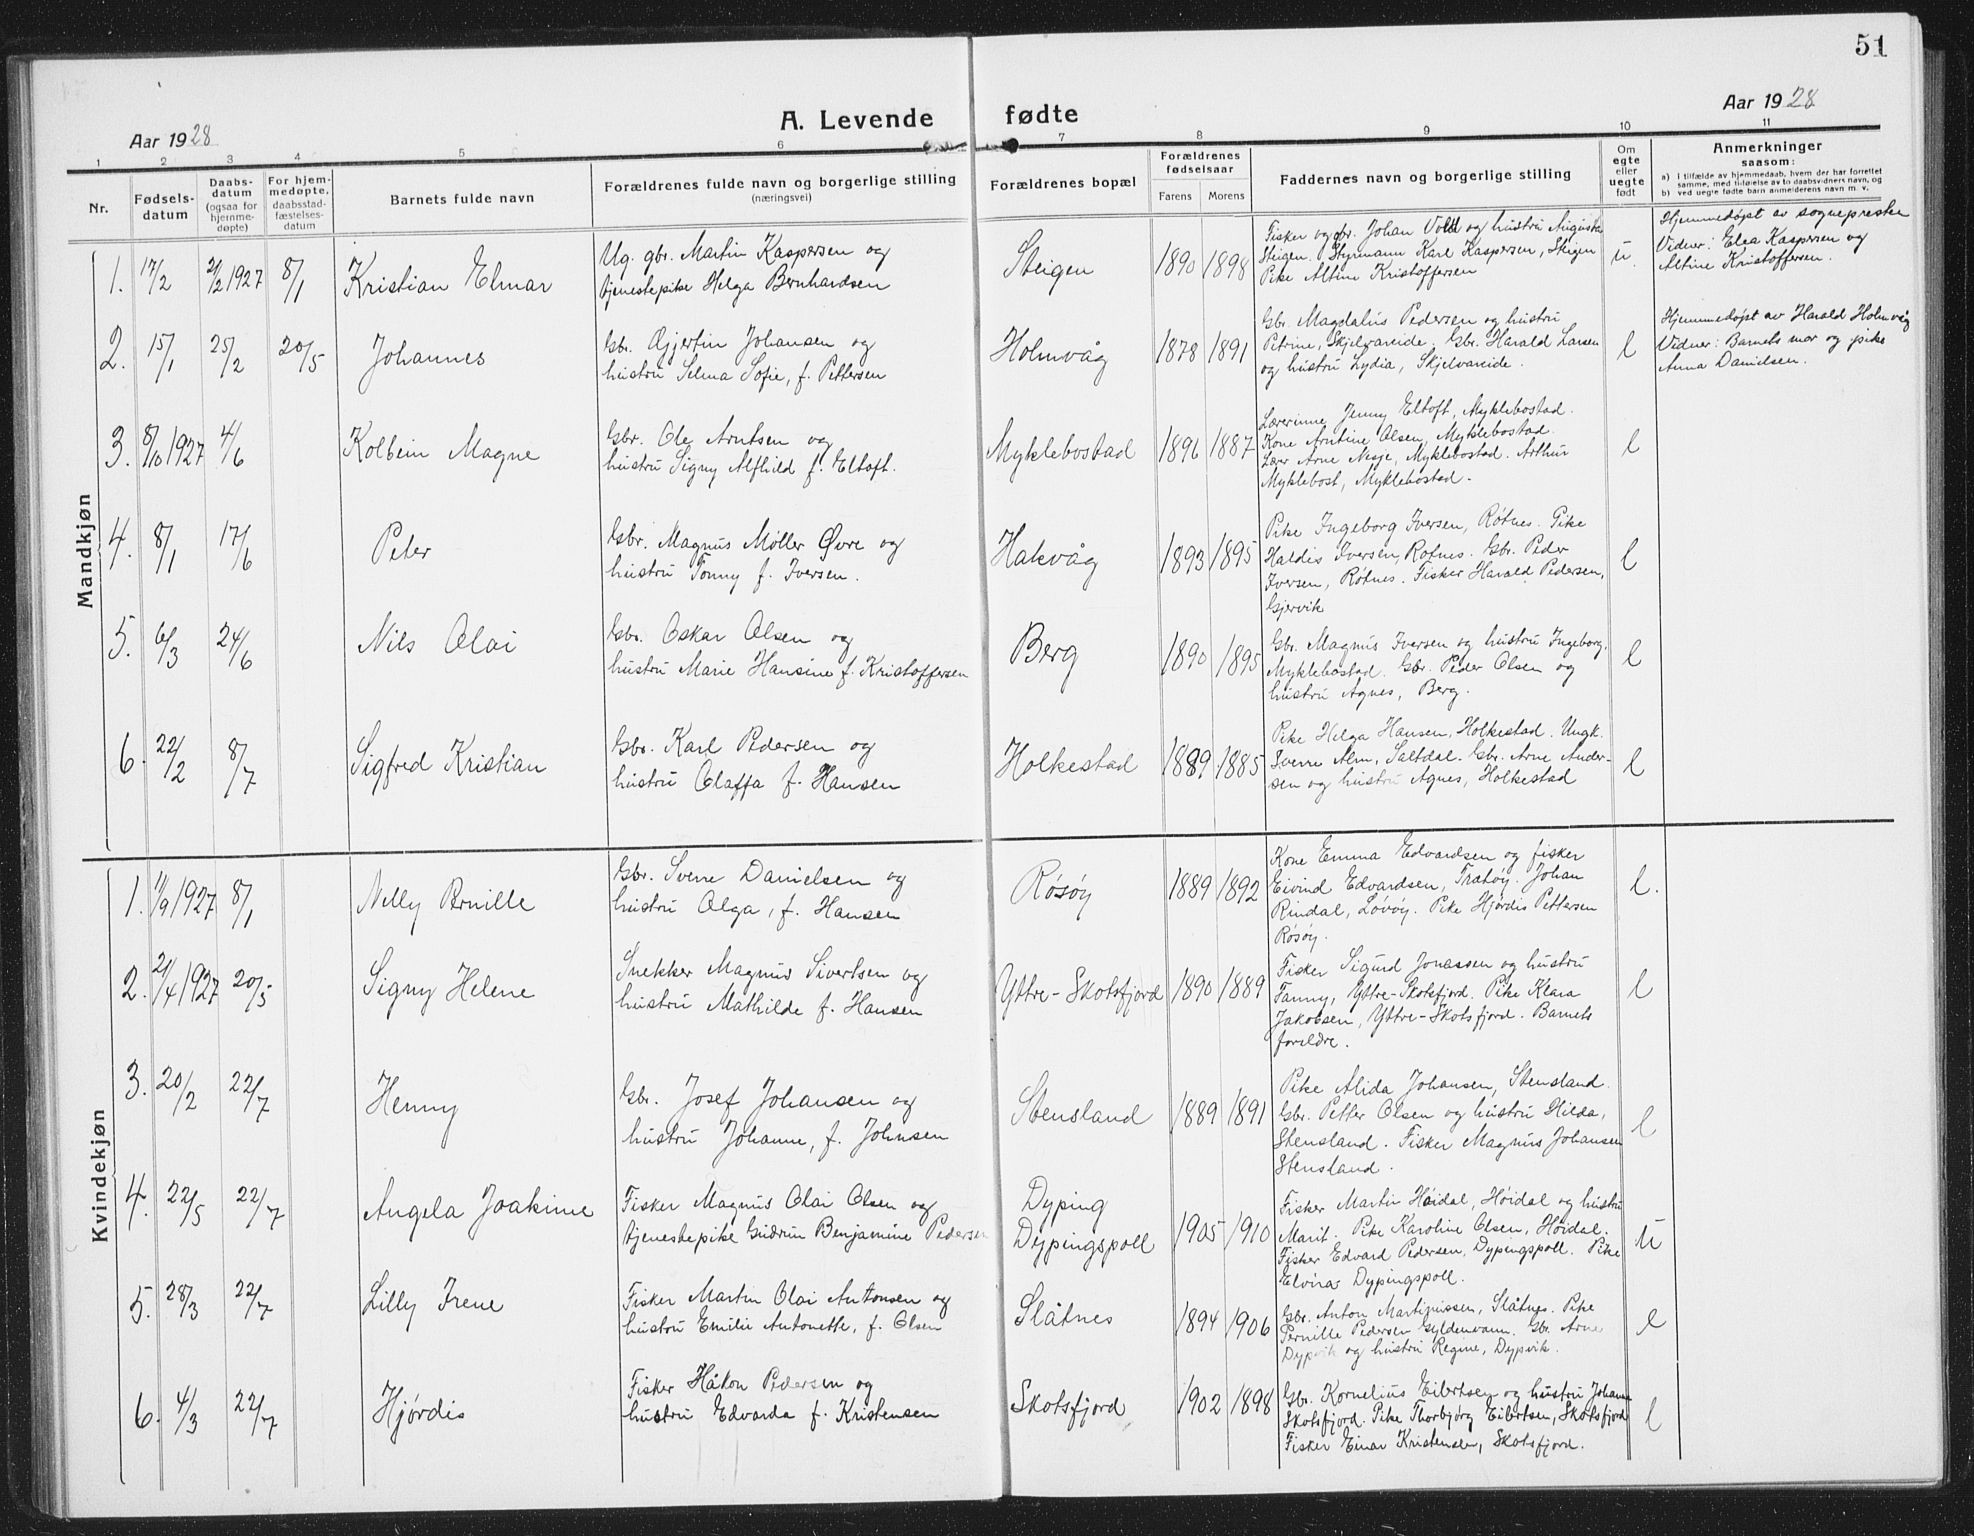 51
Aar 1928
A. Levende fødte
Aar 1928
1 2 3 4 5 6 7 8 9 10 11
Nr.
Fødsels-
datum
Daabs-
datum
(ogsaa for
hjemme-
døpte)
For hjem-
medøpte,
daabsstad-
fæstelses-
datum
Barnets fulde navn
Forældrenes fulde navn og borgerlige stilling
(næringsvei)
Forældrenes bopæl
Forældrenes
fødselsaar
Farens Morens
Faddernes navn og borgerlige stilling
Om
egte
eller
uegte
født
Anmerkninger
saasom:
a) i tilfælde av hjemmedaab, hvem der har forrettet
samme, med tilføielse av to daabsvidners navn, og
b) ved uegte fødte barn anmelderens navn m. v.
Mandkjøn
1. 17/2 21/2 1927 8/1 Kristian Elmar
Ug. gbr. Martin Kaspersen og
tjenestepike Helga Bernhardsen
Steigen 1890 1898
Fisker og gbr. Johan Vold og hustru Augusta
Steigen. Styrmann Karl Kaspersen, Steigen
Pike Altine Kristoffersen
u.
Hjemmedøpt av sognepresten
Vidner: Elea Kaspersen og
Altine Kristoffersen.
2. 15/1 25/2 20/5 Johannes
Gbr. Gjertin Johansen og
hustru Selma Sofie, f. Pettersen
Holmvåg 1878 1891
Gbr. Magdalus Pedersen og hustru
Petrine, Skjelvareide. Gbr. Harald Larsen
og hustru Lydia, Skjelvareide.
l
Hjemmedøpt av Harald Holmvåg
Vidner: Barnets mor og pike
Anna Danielsen.
3. 8/10 1927 4/6 Kolbein Magne
Gbr. Ole Arntsen og
hustru Signy Alfhild f. Eltoft.
Myklebostad 1896 1887
Lærerinne Jenny Eltoft, Myklebostad.
Kone Arntine Olsen, Myklebostad.
Lærer Arne Nesje, Myklebostad. Arthur
Myklebost, Myklebostad.
l
4. 8/1 17/6 Peter
Gbr. Magnus Møller Øvre og
hustru Tonny f. Iversen.
Hakvåg 1893 1895
Pike Ingeborg Iversen, Røtnes. Pike
Haldis Iversen, Rotnes. Gbr. Peder
Iversen, Røtnes. Fisker Harald Pedersen,
Gjervik
l
5. 6/3 24/6 Nils Olai
Gbr. Oskar Olsen og
hustru Marie Hansine f. Kristoffersen
Berg 1890 1895
Gbr. Magnus Iversen og hustru Ingeborg,
Myklebostad. Gbr. Peder Olsen og
hustru Agnes, Berg.
l
6. 22/2 8/7 Sigfred Kristian
Gbr. Karl Pedersen og
hustru Olaffa f. Hansen
Holkestad 1889 1885
Pike Helga Hansen, Holkestad. Ungk.
Sverre Alm, Saltdal. Gbr. Arne Ander-
sen og hustru Agnes, Holkestad
l
Kvindekjøn
1. 11/9 1927 8/1 Nelly Pernille
Gbr. Sverre Danielsen og
hustru Olga, f. Hansen
Røsøy 1889 1892
Kone Emma Edvardsen og fisker
Eivind Edvardsen, Tratøy. Johan
Rindal, Løvøy. Pike Hjørdis Pettersen
Røsøy.
l.
2. 21/4 1927 20/5 Signy Helene
Snekker Magnus Sivertsen og
hustru Mathilde f. Hansen
Yttre-Skotsfjord 1890 1889
Fisker Sigurd Jonassen og hustru
Fanny, Yttre-Skotsfjord. Pike Klara
Jakobsen, Yttre-Skotsfjord. Barnets
foreldre.
l
3. 20/2 22/7 Henny
Gbr. Josef Johansen og
hustru Johanne, f. Johnsen
Stensland 1889 1891
Pike Alida Johansen, Stensland.
Gbr. Petter Olsen og hustru Hilda,
Stensland. Fisker Magnus Johansen
Stensland.
l
4. 22/5 22/7 Angela Joakime
Fisker Magnus Olai Olsen og
tjenestepike Gudrun Benjamine Pedersen
Dyping
Dypingspoll 1905 1910
Fisker Martin Høidal, Høidal og hustru
Marit. Pike Karoline Olsen, Høidal.
Fisker Edvard Pedersen, Dypingspoll. Pike
Elvira Dypingspoll.
u
5. 28/3 22/7 Lilly Irene
Fisker Martin Olai Antonsen og
hustru Emilie Antonette, f. Olsen
Slåtnes 1894 1906
Gbr. Anton Martinussen, Slåtnes. Pike
Pernille Pedersen Gyldenvann. Gbr. Arne
Dypvik og hustru Regine, Dypvik.
l
6. 4/3 22/7 Hjørdis
Fisker Håkon Pedersen og
hustru Edvarda f. Kristensen
Skotsfjord 1902 1898
Gbr. Kornelius Eilertsen og hustru Johanna
Skotsfjord. Pike Thorbjørg Eilertsen, Skotsfjord
Fisker Einar Kristensen, Skotsfjord.
l